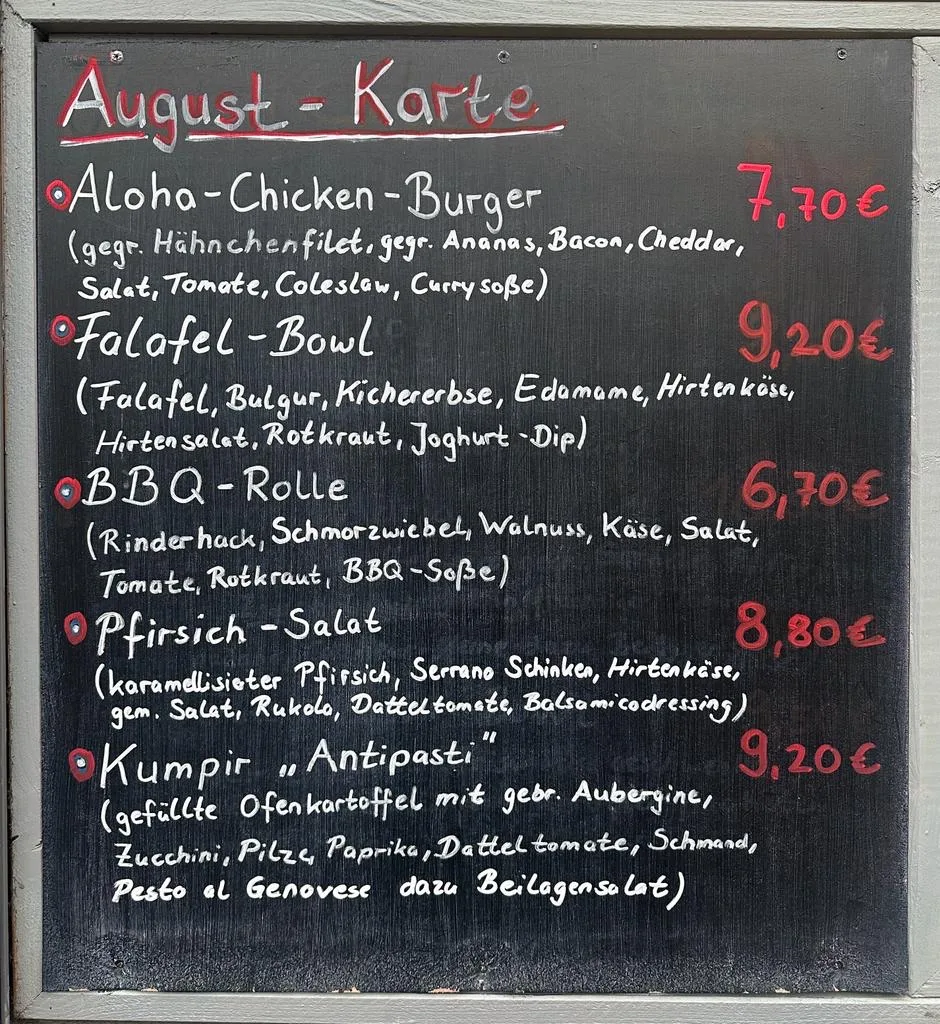 August - Karte
Aloha-Chicken-Burger 7,70€
(gegr. Hähnchenfilet, gegr. Ananas, Bacon, Cheddar,
Salat, Tomate, Coleslaw, Currysoße)
Falafel-Bowl 9,20€
(Falafel, Bulgur, Kichererbse, Edamame, Hirtenkäse,
Hirtensalat, Rotkraut, Joghurt-Dip)
BBQ-Rolle 6,70€
(Rinderhack, Schmorzwiebel, Walnuss, Käse, Salat,
Tomate, Rotkraut, BBQ-Soße)
Pfirsich-Salat 8,80€
(karamellisieter Pfirsich, Serrano Schinken, Hirtenkäse,
gem. Salat, Rukola, Datteltomate, Balsamicodressing)
Kumpir „Antipasti" 9,20€
(gefüllte Ofenkartoffel mit gebr. Aubergine,
Zucchini, Pilze, Paprika, Datteltomate, Schmand,
Pesto al Genovese dazu Beilagensalat)